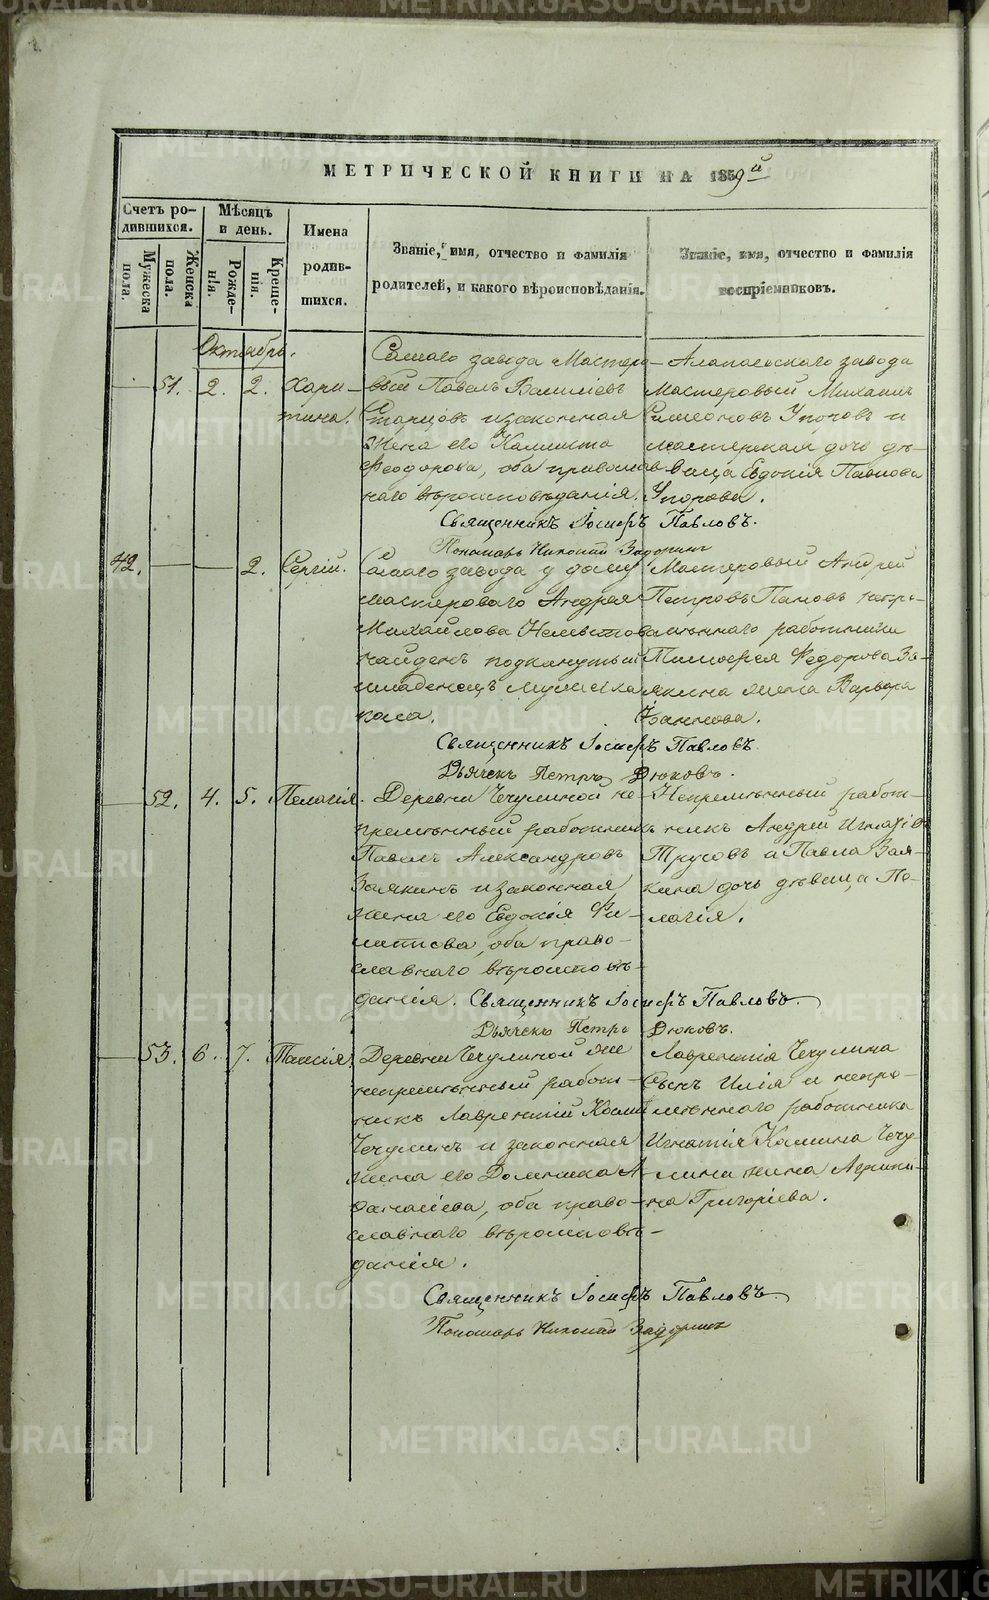 МЕТРИЧЕСКОЙ КНИГИ НА 1859й
Счетъ ро-
дившихся.
Мужеска
пола.
Женска
пола.
Мѣсяцъ
и день.
Рожде-
нія.
Креще-
нія.
Имена
родив-
шихся.
Званіе, имя, отчество и фамилія
родителей, и какого вѣроисповѣданія.
Званіе, имя, отчество и фамилія
воспріемниковъ.
Октябрь.
51. 2. 2.
Хари-
тина.
Самаго завода Мастеро-
вый Павелъ Василіевъ
Старцовъ и законная
жена его Каллиста
Феодорова, оба православ-
наго вѣроисповѣданія.
Алапаевскаго завода
Мастеровый Михаилъ
Симеоновъ Упоровъ и
мастерская дочь дѣ-
вица Евдокія Павлова
Упорова.
Священникъ Іосифъ Павловъ.
Пономарь Николай Задоринъ
42. 2.
Сергій.
Самаго завода у дому
мастероваго Андрея
Михайлова
найденъ подкинутый
младенецъ мужеска
пола.
Мастеровый Андрей
Петровъ Пановъ непре-
мѣннаго работника
Тимофея Федорова За-
якина жена Варвара
Иванова.
Священникъ Іосифъ Павловъ.
Дьячекъ Петръ Дюковъ.
52. 4. 5.
Пелагія.
Деревни Чечулиной не-
премѣнный работникъ
Павелъ Александровъ
Заякинъ и законная
жена его Евдокія Фи-
липпова, оба право-
славнаго вѣроисповѣ-
данія.
Непремѣнный работ-
никъ Андрей Игнатіевъ
Трусовъ и Павла Зая-
кина дочь дѣвица Пе-
лагія.
Священникъ Іосифъ Павловъ.
Дьячекъ Петръ Дюковъ.
53. 6. 7.
Таисія.
Деревни Чечулиной же
непремѣнный работ-
никъ Лаврентій
Чечулинъ и законная
жена его Домника А-
ѳанасіева, оба право-
славнаго вѣроисповѣ-
данія.
Лаврентія Чечулина
Сынъ Илія и непре-
мѣннаго работника
Игнатія Чечу-
лина жена Агрипи-
на Григоріева.
Священникъ Іосифъ Павловъ.
Пономарь Николай Задоринъ
METRIKI.GASO-URAL.RU